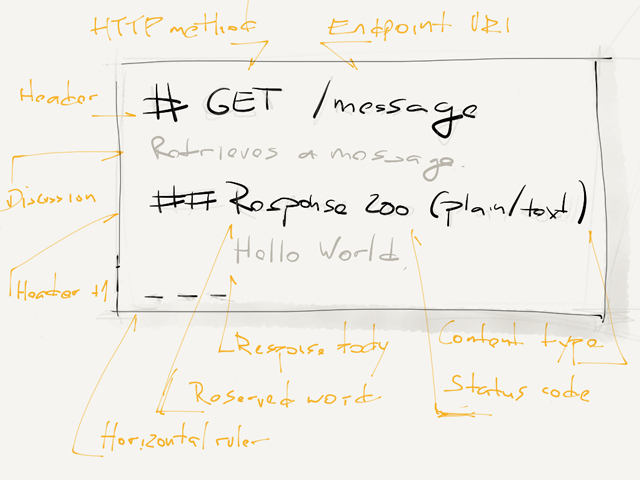 HTTP method Endpoint URI
Header
# GET /message
Retrieves a message.
Discussion
## Response 200 (plain/text)
Hello World.
Header +1
---
Response body
Content type
Reserved word
Status code
Horizontal ruler